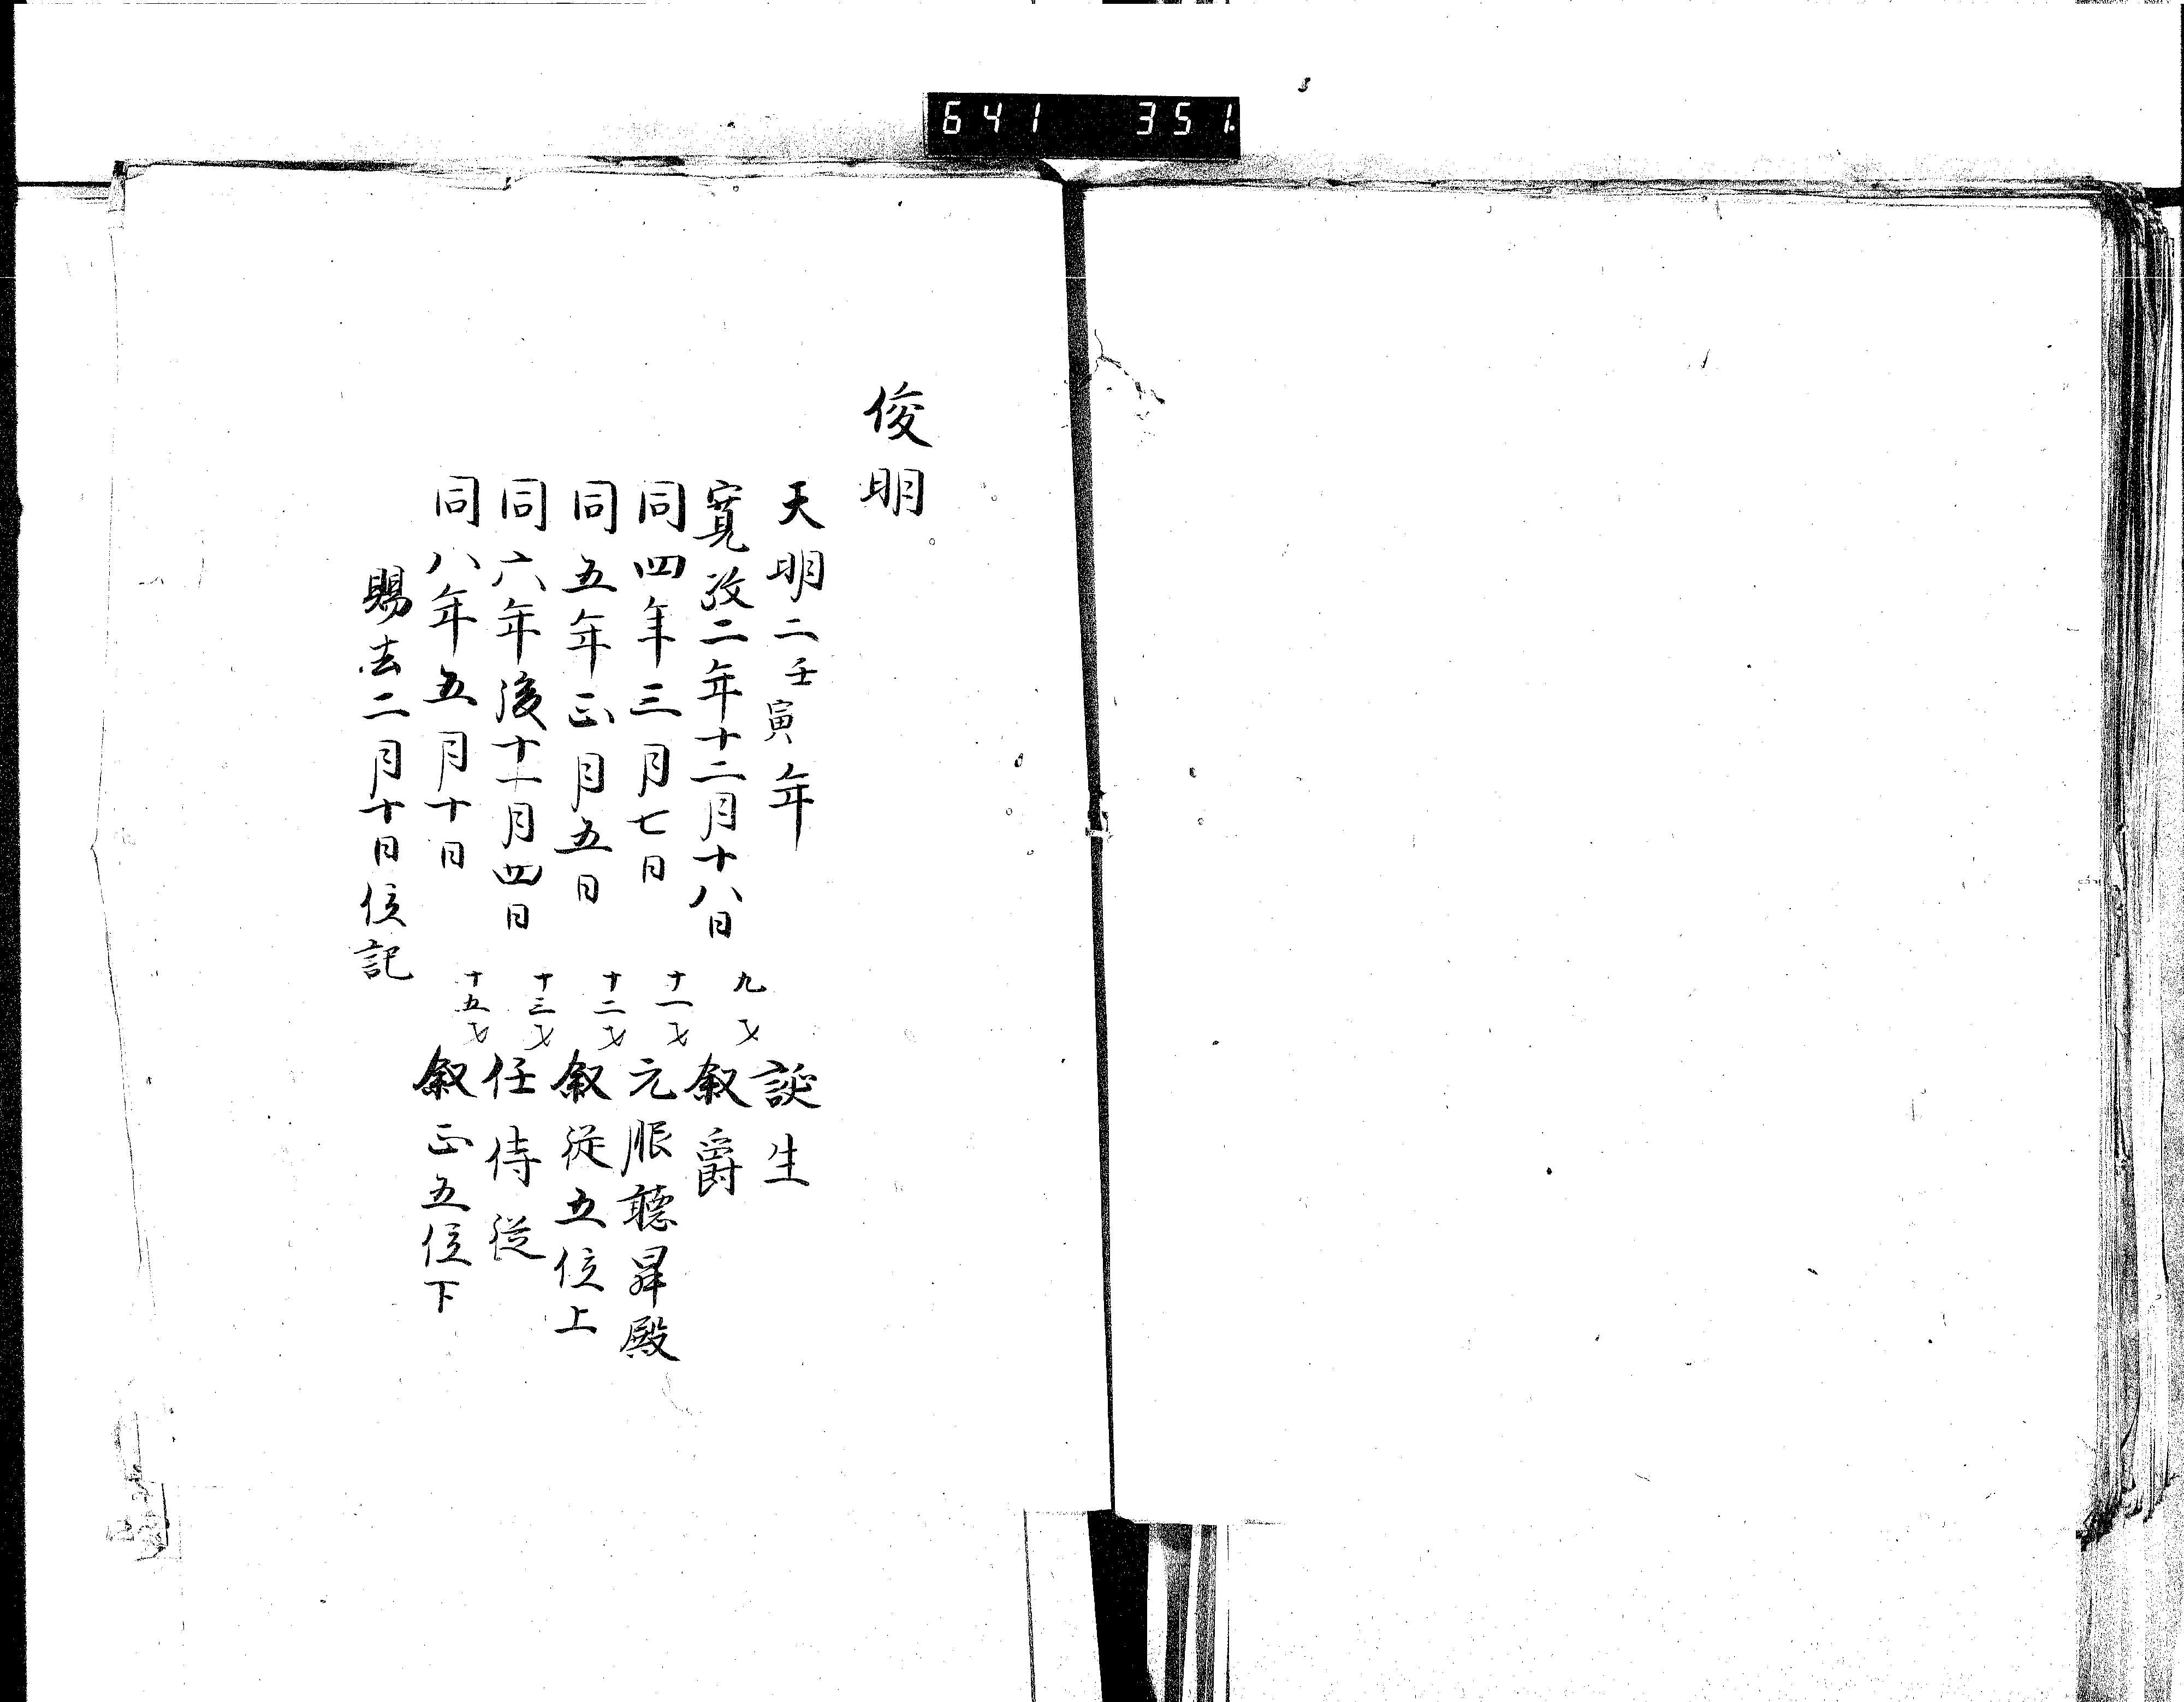 641 351
俊明
天明二壬寅年 誕生
寛政二年十二月十八日 九才 叙爵
同四年三月七日 十一才 元服聴昇殿
同五年正月五日 十二才 叙従五位上
同六年後十一月四日 十三才 任侍従
同八年五月十日 十五才 叙正五位下
賜去二月十日位記